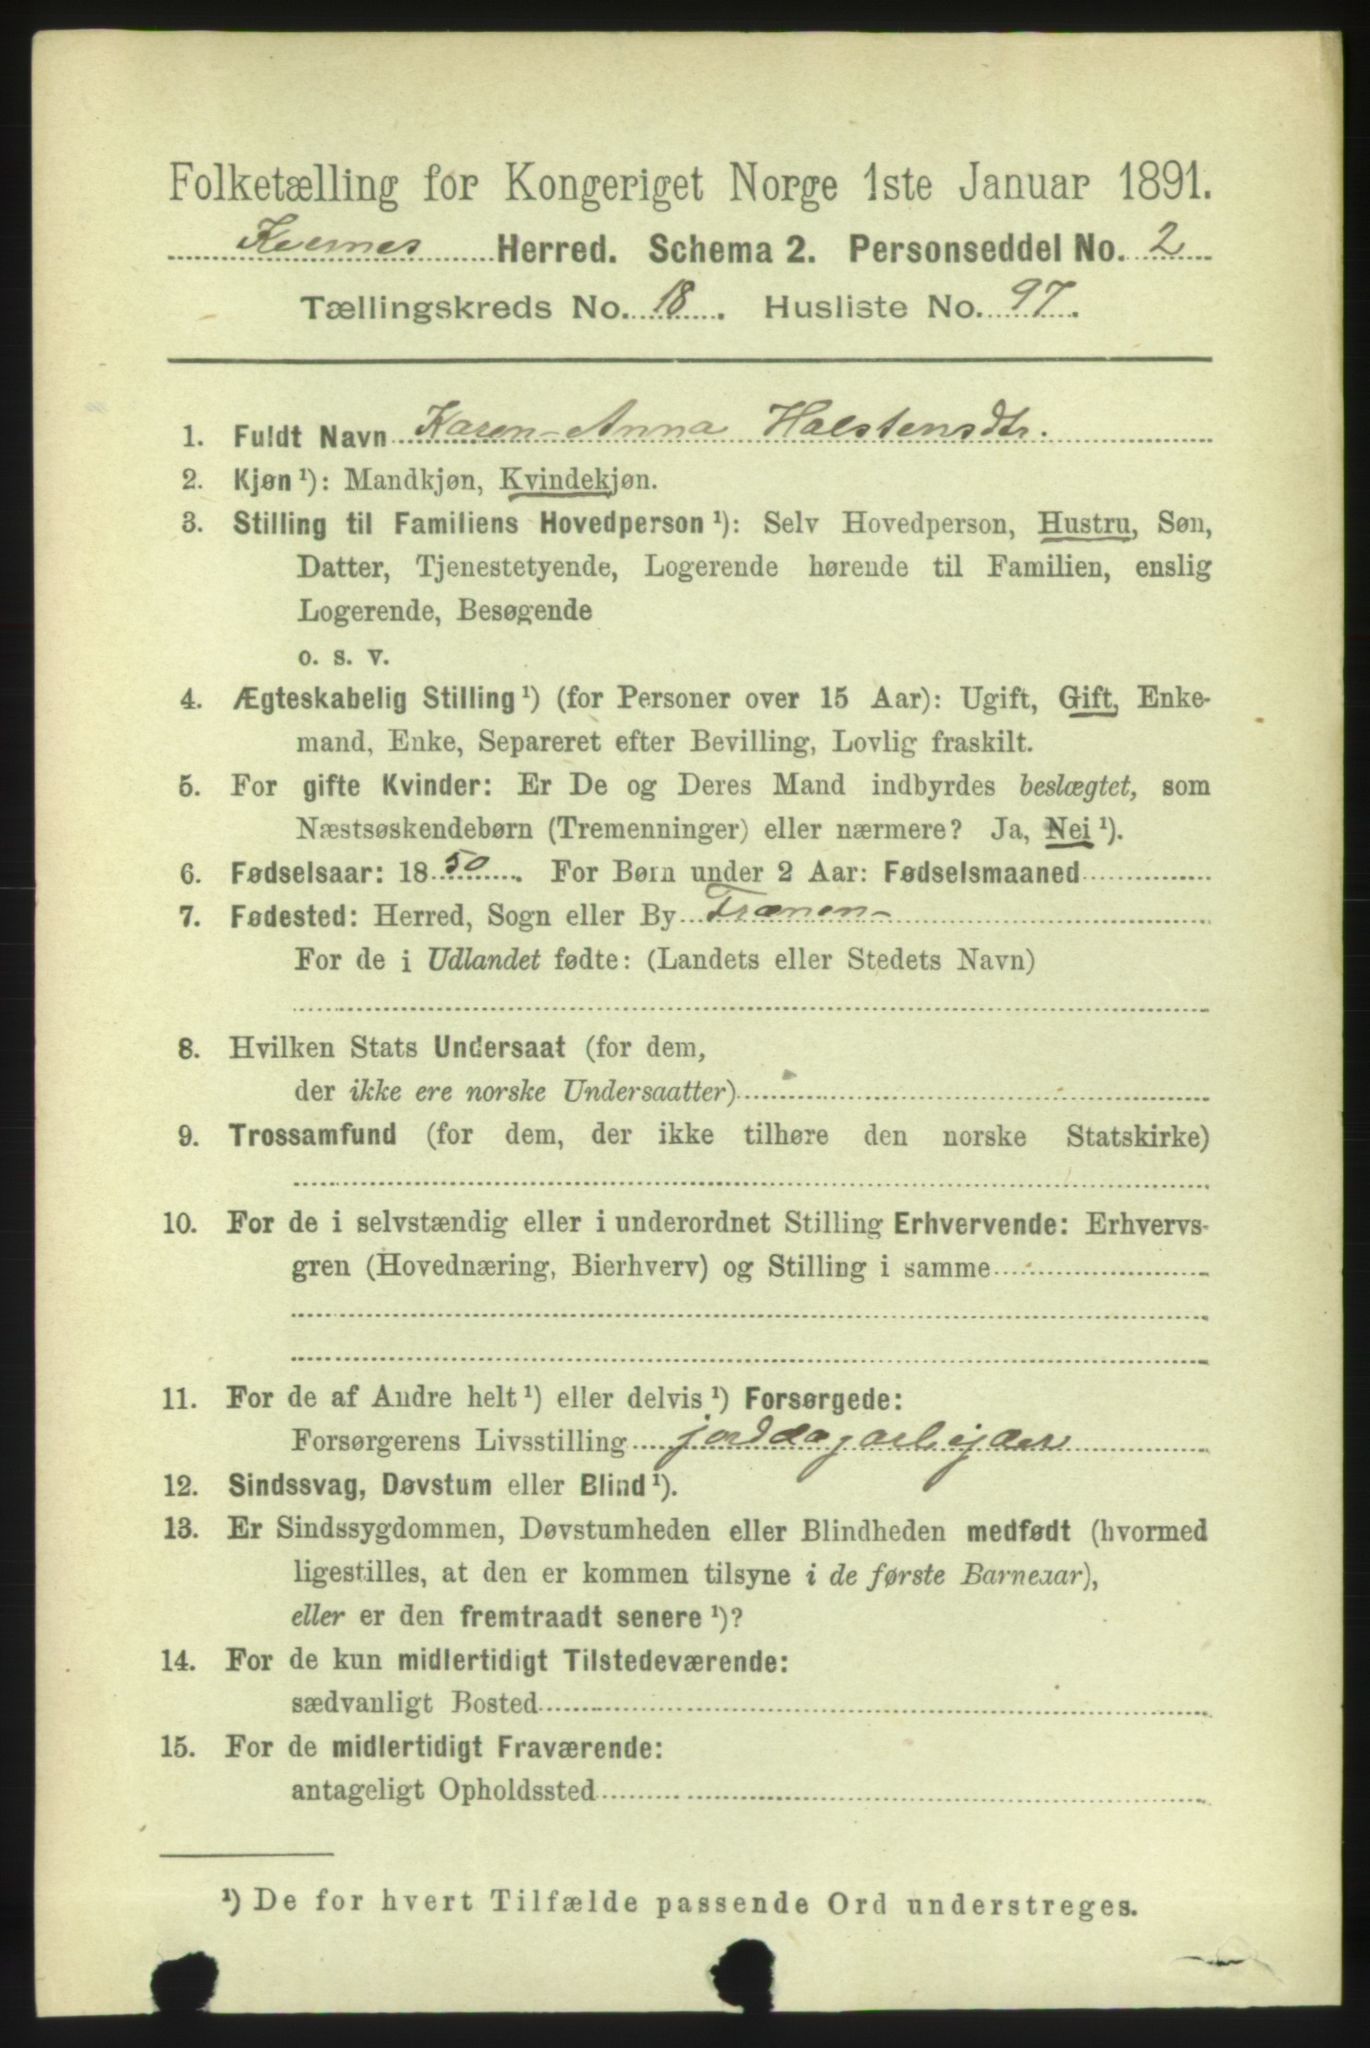 Folketælling for Kongeriget Norge 1ste Januar 1891.
Kvernes Herred. Schema 2. Personseddel No. 2
Tællingskreds No. 18. Husliste No. 97.
1. Fuldt Navn Karen Anna Halstensdtr.
2. Kjøn¹): Mandkjøn, Kvindekjøn.
3. Stilling til Familiens Hovedperson¹): Selv Hovedperson, Hustru, Søn,
Datter, Tjenestetyende, Logerende hørende til Familien, enslig
Logerende, Besøgende
o. s. v.
4. Ægteskabelig Stilling¹) (for Personer over 15 Aar): Ugift, Gift, Enke-
mand, Enke, Separeret efter Bevilling, Lovlig fraskilt.
5. For gifte Kvinder: Er De og Deres Mand indbyrdes beslægtet, som
Næstsøskendebørn (Tremenninger) eller nærmere? Ja, Nei¹).
6. Fødselsaar: 1850. For Børn under 2 Aar: Fødselsmaaned
7. Fødested: Herred, Sogn eller By
For de i Udlandet fødte: (Landets eller Stedets Navn)
8. Hvilken Stats Undersaat (for dem,
der ikke ere norske Undersaatter)
9. Trossamfund (for dem, der ikke tilhøre den norske Statskirke)
10. For de i selvstændig eller i underordnet Stilling Erhvervende: Erhvervs-
gren (Hovednæring, Bierhverv) og Stilling i samme
11. For de af Andre helt¹) eller delvis¹) Forsørgede:
Forsørgerens Livsstilling
12. Sindssvag, Døvstum eller Blind¹).
13. Er Sindssygdommen, Døvstumheden eller Blindheden medfødt (hvormed
ligestilles, at den er kommen tilsyne i de første Barneaar),
eller er den fremtraadt senere¹)?
14. For de kun midlertidigt Tilstedeværende:
sædvanligt Bosted
15. For de midlertidigt Fraværende:
antageligt Opholdssted
¹) De for hvert Tilfælde passende Ord understreges.